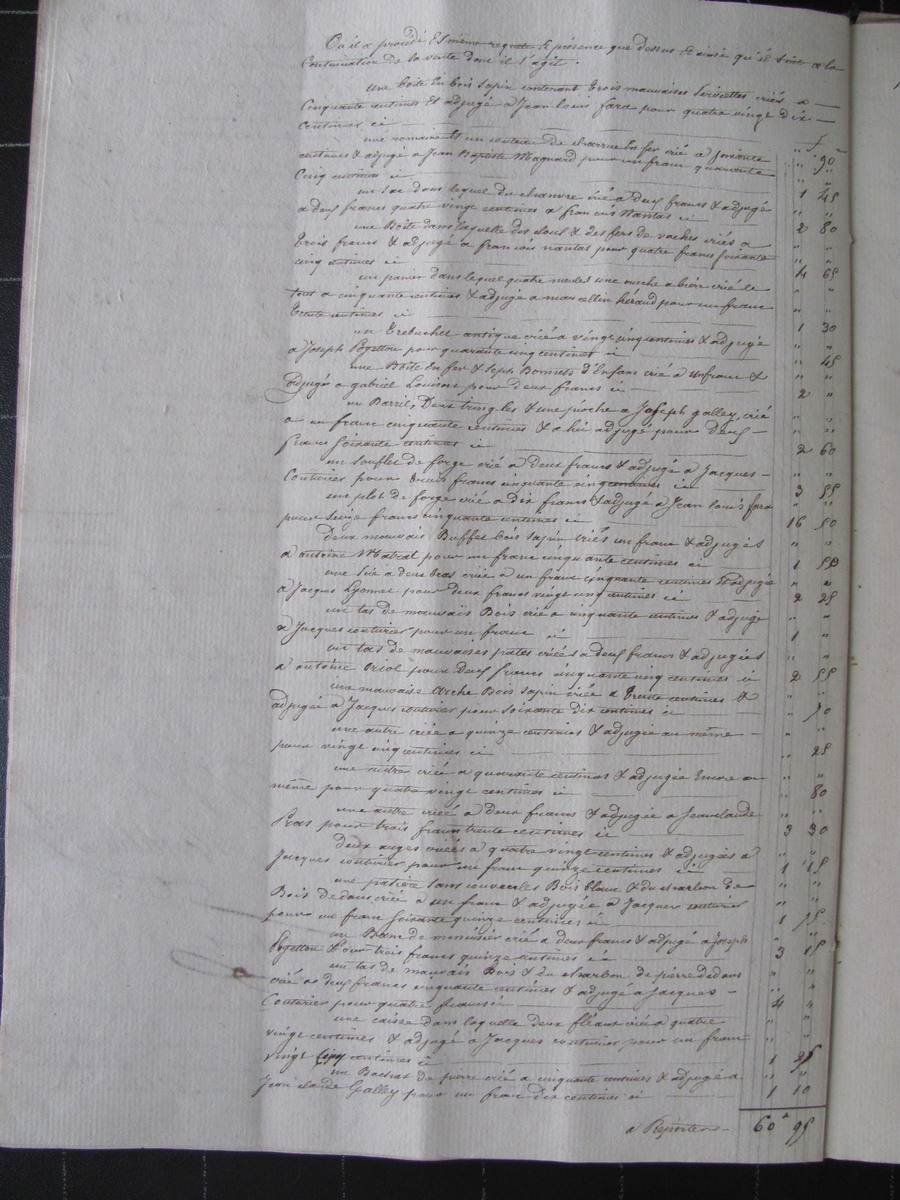 Où il a procédé Es même requete & présence que dessus & ainsi qu'il suit a la
Continuation de la vente dont il s'agit.
une boite En bois sapin contenant trois mauvaises serviettes criés a
Cinquante centimes et adjugé a Jean louis fara pour quatre vingt dix
Centimes ci " 90
une romaine Et un couteau de charrue En fer crié a soixante
centimes & adjugé a Jean Baptiste Magnard pour un franc quarante
Cinq centimes ci 1 45
un sac dans lequel du chanvre crié a deux francs & adjugé
a deux francs quatre vingt centimes a francois Nantas ci 2 80
une Boite dans laquelle des clous & des fers de vaches criés a
trois francs & adjugé a francois nantas pour quatre francs soixante
cinq centimes ci 4 65
un panier dans lequel quatre meules une cruche a bière crié le
tout a cinquante centimes & adjugé a marcellin héraud pour un franc
trente centimes ci 1 30
un trebuchet antique crié a vingt cinq centimes & adjugé
a Joseph Pogettou pour quarante cinq centimes ci " 45
une Boite En fer & sept Bonnets d'Enfans crié a un franc &
adjugés a gabriel Louison pour deux francs ci 2 "
un Barril, Deux tringles & une pioche a Joseph galley, crié
a un franc cinquante centimes & a lui adjugé pour deux
francs soixante centimes ci 2 60
un souflet de forge crié a deux francs & adjugé a Jacques
Couturier pour trois francs cinquante cinq centimes ci 3 55
un plot de forge crié a dix francs & adjugé a Jean louis fara
pour seize francs cinquante centimes ci 16 50
deux mauvais Buffet bois sapin criés un franc & adjugés
a antoine Matrat pour un franc cinquante centimes ci 1 50
une scie a deux bras criée a un franc cinquante centimes & adjugée
a Jacques Lyonnet pour deux francs vingt cinq centimes ci 2 25
un tas de mauvais Bois crié a cinquante centimes & adjugé
a Jacques couturier pour un franc ci 1 "
un tas de mauvaises pates criées a deux francs & adjugées
a antoine Oriol pour Deux francs cinquante cinq centimes ci 2 55
une mauvaise Arche Bois sapin criée a trente centimes &
adjugée a Jacques couturier pour soixante dix centimes ci " 70
une autre criée a quinze centimes & adjugée au même
pour vingt cinq centimes ci " 25
une autre criée a quarante centimes & adjugée Encore au
même pour quatre vingt centimes ci " 80
une autre criée a Deux francs & adjugée a Jean claude
Pras pour trois francs trente centimes ci 3 30
deux auges criées a quatre vingt centimes & adjugées a
Jacques couturier pour un franc quinze centimes ci 1 15
une patière sans couvercles Bois blanc & du charbon de
Bois dedans criée a un franc & adjugée a Jacques couturier
pour un franc soixante quinze centimes ci 1 75
un Banc de menuisier crié a deux francs & adjugé a Joseph
Pogettou Pour trois francs quinze centimes ci 3 15
un tas de mauvais Bois & du charbon de pierre dedans
crié a deux francs cinquante centimes & adjugé a Jacques
Couturier pour quatre francs ci 4 "
une caisse dans laquelle deux fléaux criée a quatre
vingt centimes & adjugé a Jacques couturier pour un franc
vingt Cinq centimes ci 1 25
un Bachat de pierre crié a cinquante centimes & adjugé a
Jean claude Galley pour un franc dix centimes ci 1 10
a Reporter 60 95